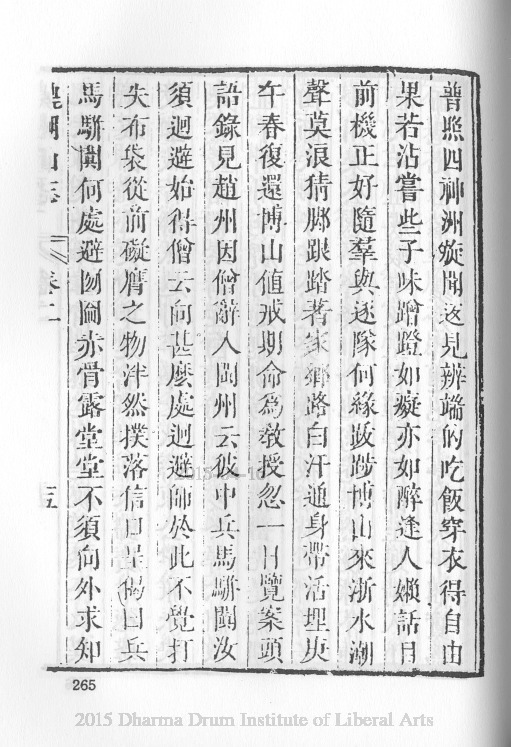 普照四神洲旋聞返見辨端的吃飯穿衣得自由
果若沾嘗些子味蹭蹬如癡亦如醉逢人嬾話目
前機正好隨羣與逐隊何緣跋踄博山來浙水潮
聲莫浪猜腳跟踏著家鄉路白汗通身帶活埋庚
午春復還博山值戒期命為教授忽一日覽案頭
語錄見趙州因僧辭入閩州云彼中兵馬駢闐汝
須迴避始得僧云向甚麼處迴避師於此不覺打
失布袋從前礙膺之物泮然撲落信口呈偈曰兵
馬駢闐何處避囫圇赤骨露堂堂不須向外求知
湖山志 卷二 五
265
2015 Dharma Drum Institute of Liberal Arts